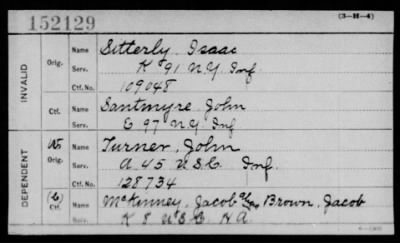 152129 (3-H-4)
INVALID
Orig. Name Sitterly, Isaac
Serv. K 91 N.Y. Inf
Ctf. No. 109048
Ctf. Name Santmyre, John
Serv. E 97 N.Y. Inf
DEPENDENT
Orig. Name Turner, John
Serv. A 45 U.S.C. Inf.
Ctf. No. 128734
Ctf. Name McKenney, Jacob alias Brown, Jacob
Serv. K 8 U.S.C. HA